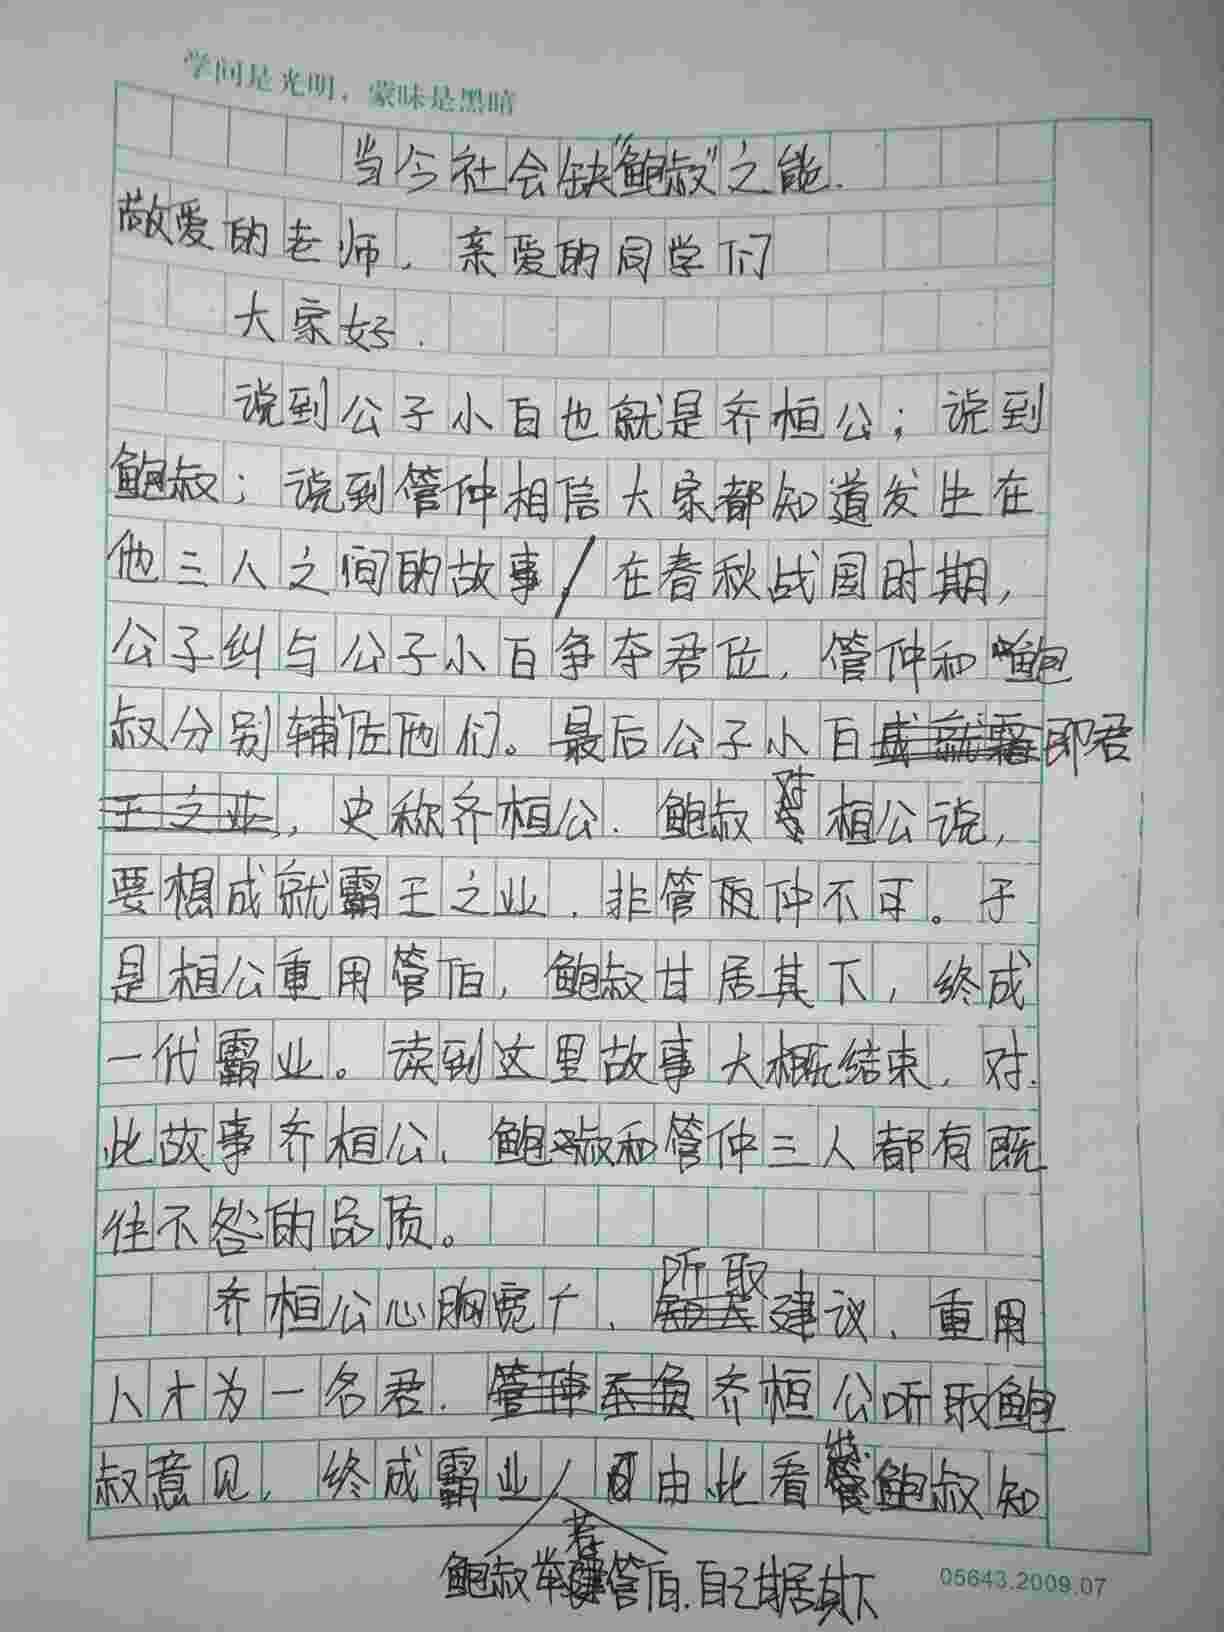 学问是光明，蒙昧是黑暗
当今社会缺“鲍叔”之能.
敬爱的老师，亲爱的同学们
大家好.
说到公子小白也就是齐桓公；说到
鲍叔；说到管仲相信大家都知道发生在
他三人之间的故事/在春秋战国时期，
公子纠与公子小白争夺君位，管仲和鲍
叔分别辅佐他们。最后公子小白成就霸即君
王之业，史称齐桓公.鲍叔对桓公说，
要想成就霸王之业，非管仲不可。于
是桓公重用管伯，鲍叔甘居其下，终成
一代霸业。读到这里故事大概结束，对
此故事齐桓公、鲍叔和管仲三人都有既
往不咎的品质。
齐桓公心胸宽广，听取建议、重用
人才为一名君.管仲不负齐桓公听取鲍
叔意见，终成霸业/由此看鲍叔知
若
鲍叔举管伯.自己甘居其下
05643.2009.07